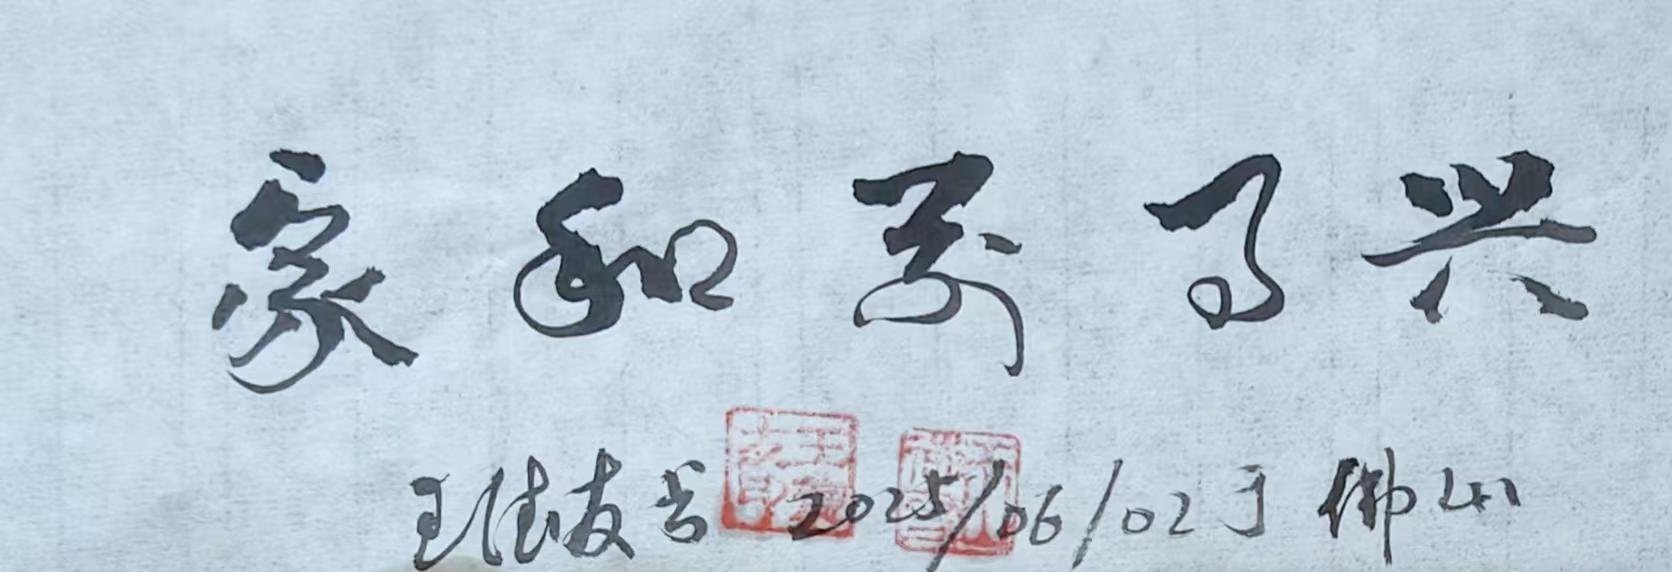 家和万事兴
王德友书 2025/06/02于佛山